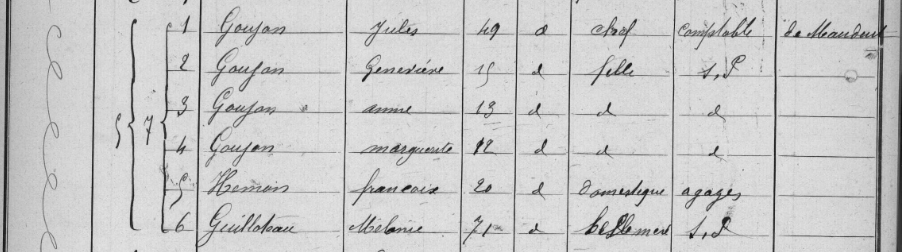 5 7 1 Goujon Jules 49 d chef comptable de Mauduit
2 Goujon Geneviève 15 d fille s.P
3 Goujon anne 13 d d d
4 Goujon marguerite 12 d d d
5 Hemon francois 20 d domestique agages
6 Guilloteau Mélanie 71 d belle mere s.P